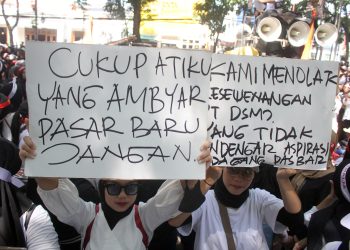 CUKUP ATIKU
YANG AMBYAR
PASAR BARU
JANGAN.
KAMI MENOLAK
KESEWENANGAN
T DSM?
YANG TIDAK
NDENGAR ASPIRASI
DAGANG PASBAR